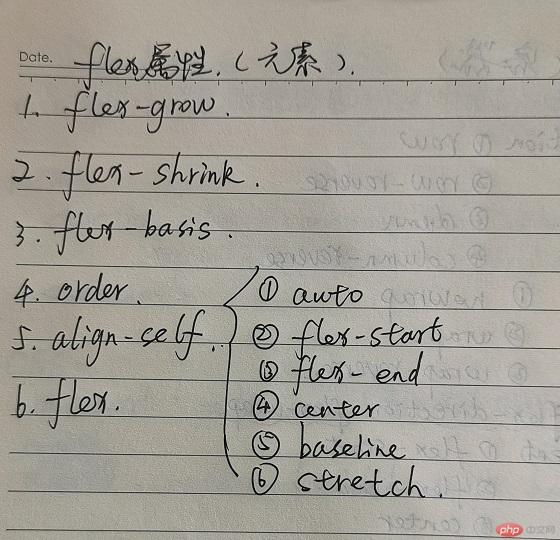 Date.
flex属性.(元素).
1. flex-grow.
2. flex-shrink.
3. flex-basis.
4. order.
5. align-self.
① auto
② flex-start
③ flex-end
④ center
⑤ baseline
⑥ stretch.
6. flex.
php 中文网